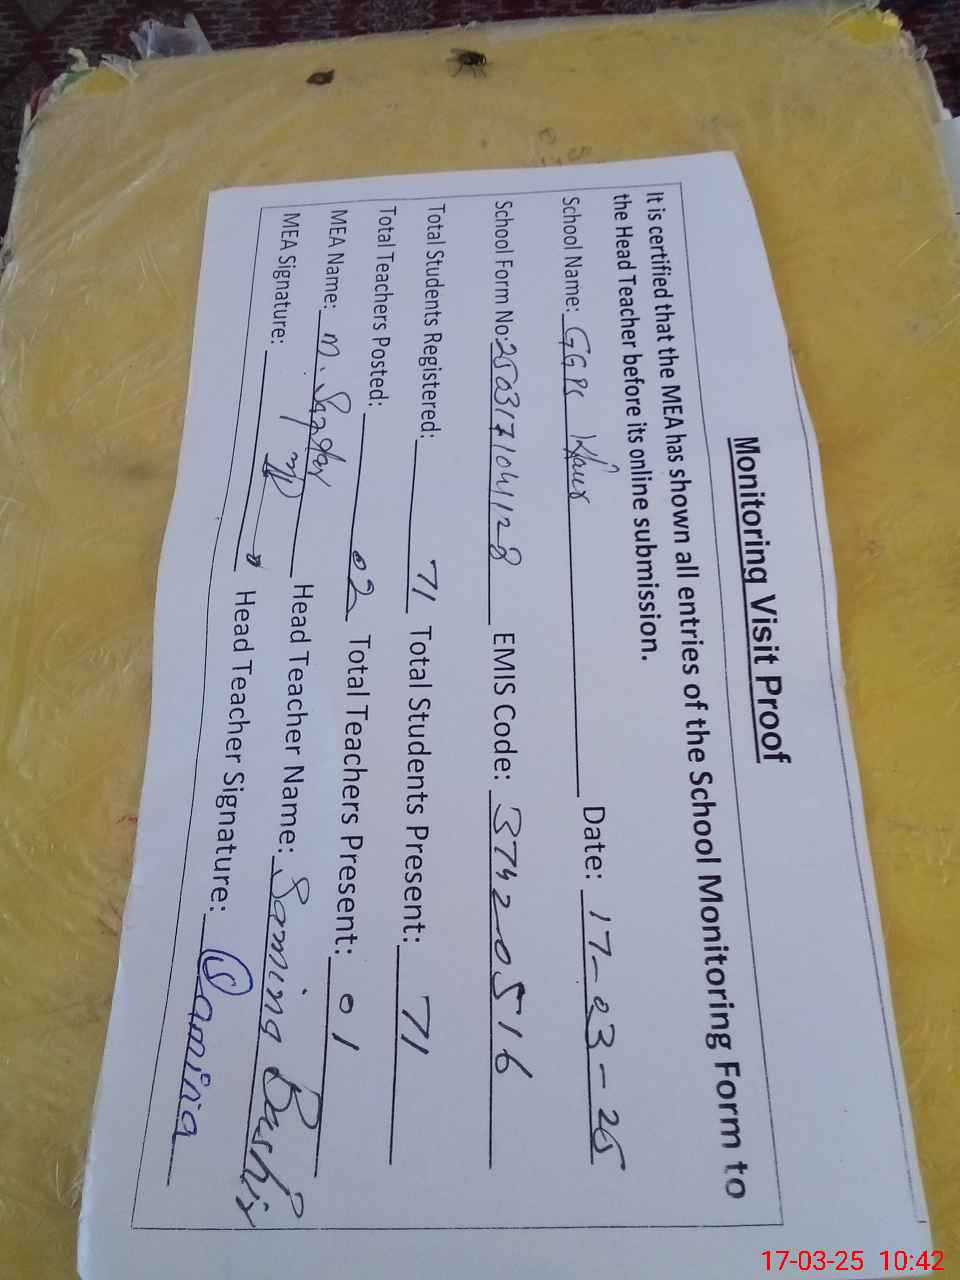 Monitoring Visit Proof
It is certified that the MEA has shown all entries of the School Monitoring Form to
the Head Teacher before its online submission.
School Name: GGPS Date: 17-03-25
School Form No: 250317104128 EMIS Code: 37420516
Total Students Registered: 71 Total Students Present: 71
Total Teachers Posted: 02 Total Teachers Present: 01
MEA Name: M. Head Teacher Name: Samina Bashir
MEA Signature: Head Teacher Signature: Samina
17-03-25 10:42